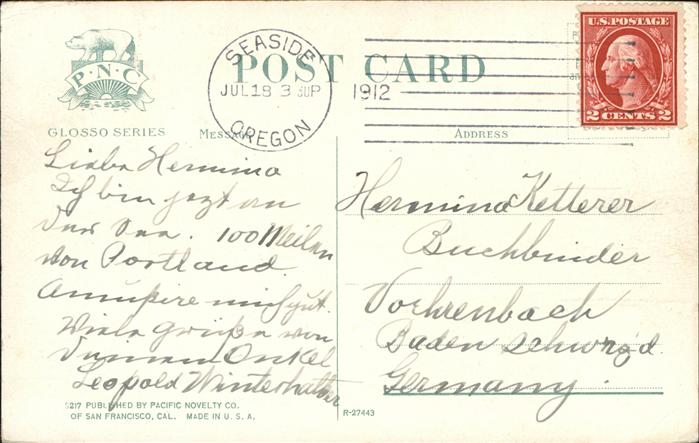 P·N·C
GLOSSO SERIES
POST CARD
SEASIDE
JUL 18 3 30P
OREGON
1912
U.S. POSTAGE
2 CENTS 2
MESSAGE
ADDRESS
Liebe Hermina
Ich bin jezt an
der See. 100 Meilen
von Portland.
Amüsire mich gut.
Viele Grüße von
Deinem Onkel
Leopold Winterhalter
Hermina Ketterer
Buchbinder
Vöhrenbach
Baden Schwrzd
Germany.
5217 PUBLISHED BY PACIFIC NOVELTY CO.
OF SAN FRANCISCO, CAL. MADE IN U.S.A.
R-27443